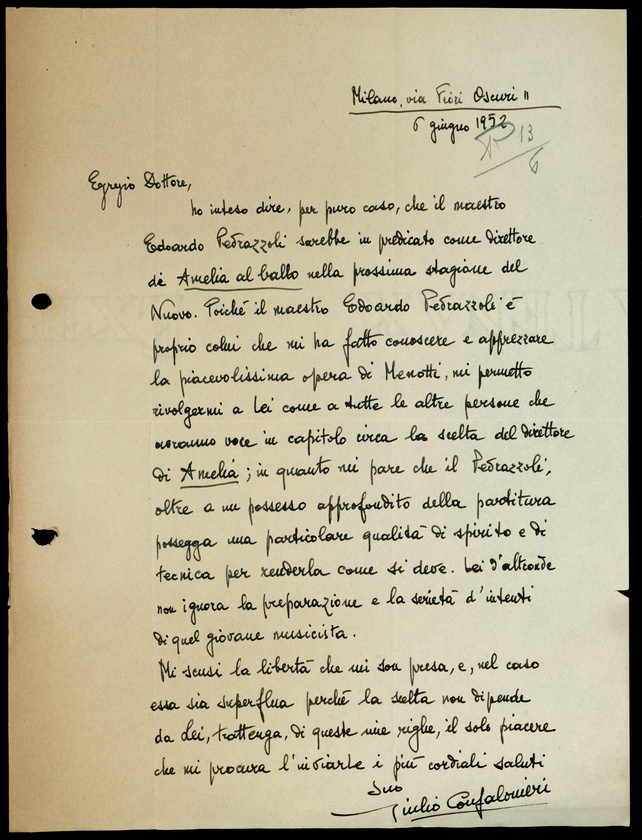 Milano, via Fiori Oscuri 11
6 giugno 1952
13
6
Egregio Dottore,
ho inteso dire, per puro caso, che il maestro
Edoardo Pedrazzoli sarebbe in predicato come direttore
di Amelia al ballo nella prossima stagione del
Nuovo. Poiché il maestro Edoardo Pedrazzoli è
proprio colui che mi ha fatto conoscere e apprezzare
la piacevolissima opera di Menotti, mi permetto
rivolgermi a Lei come a tutte le altre persone che
avranno voce in capitolo circa la scelta del direttore
di Amelia; in quanto mi pare che il Pedrazzoli,
oltre a un possesso approfondito della partitura
possegga una particolare qualità di spirito e di
tecnica per renderla come si deve. Lei d'altronde
non ignora la preparazione e la serietà d'intenti
di quel giovane musicista.
Mi scusi la libertà che mi son presa, e, nel caso
essa sia superflua perché la scelta non dipende
da Lei, trattenga, di queste mie righe, il solo piacere
che mi procura l'inviarle i più cordiali saluti
Suo
Giulio Confalonieri